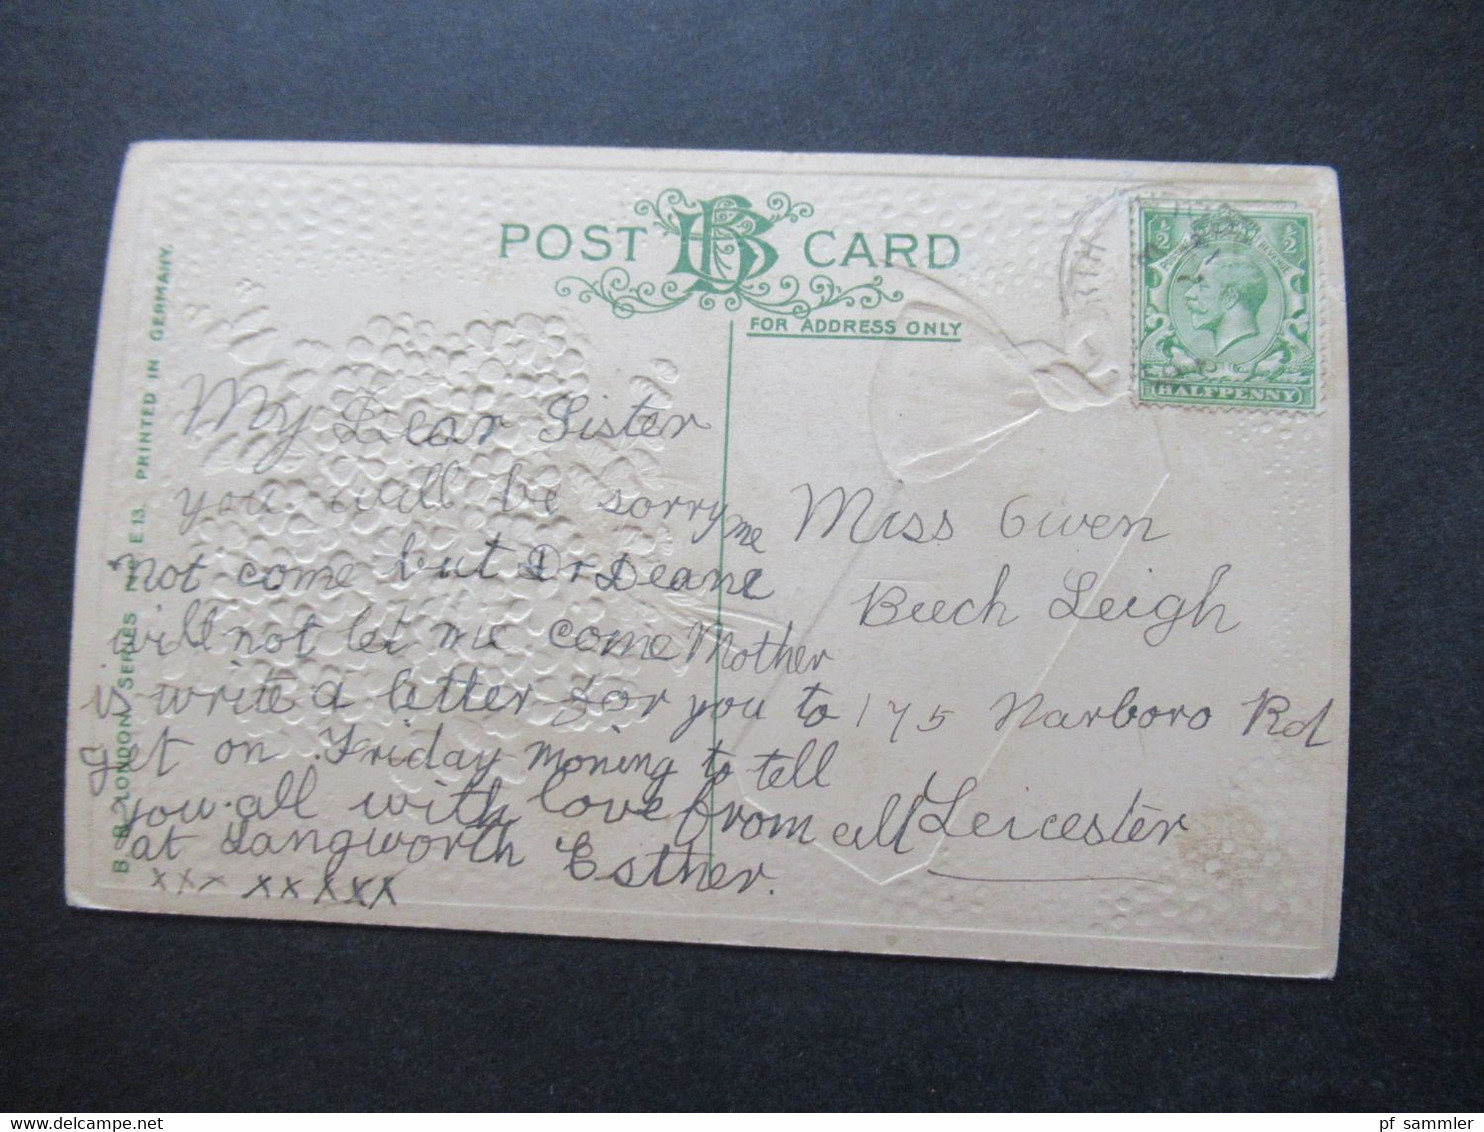 POST BB CARD
FOR ADDRESS ONLY
½ ½
HALFPENNY
RTH
B.B. LONDON. SERIES No E.13. PRINTED IN GERMANY.
My Dear Sister
you will be sorry me
not come but Dr Deane
will not let me come Mother
write a letter for you to
get on Friday moning to tell
you all with love from all
at Langworth Esther.
xxx xx xxx
Miss Gwen
Beech Leigh
175 Narboro Rd
Leicester
pf sammler